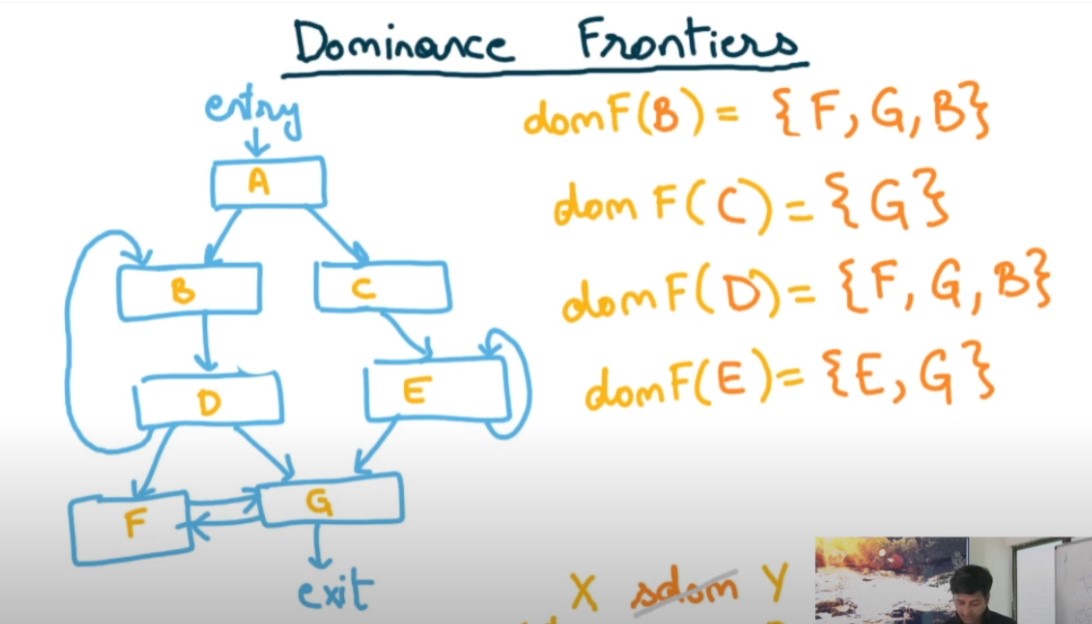 Dominance Frontiers
entry
A
B
C
D
E
F
G
exit
domF(B) = {F, G, B}
domF(C) = {G}
domF(D) = {F, G, B}
domF(E) = {E, G}
X sdom Y